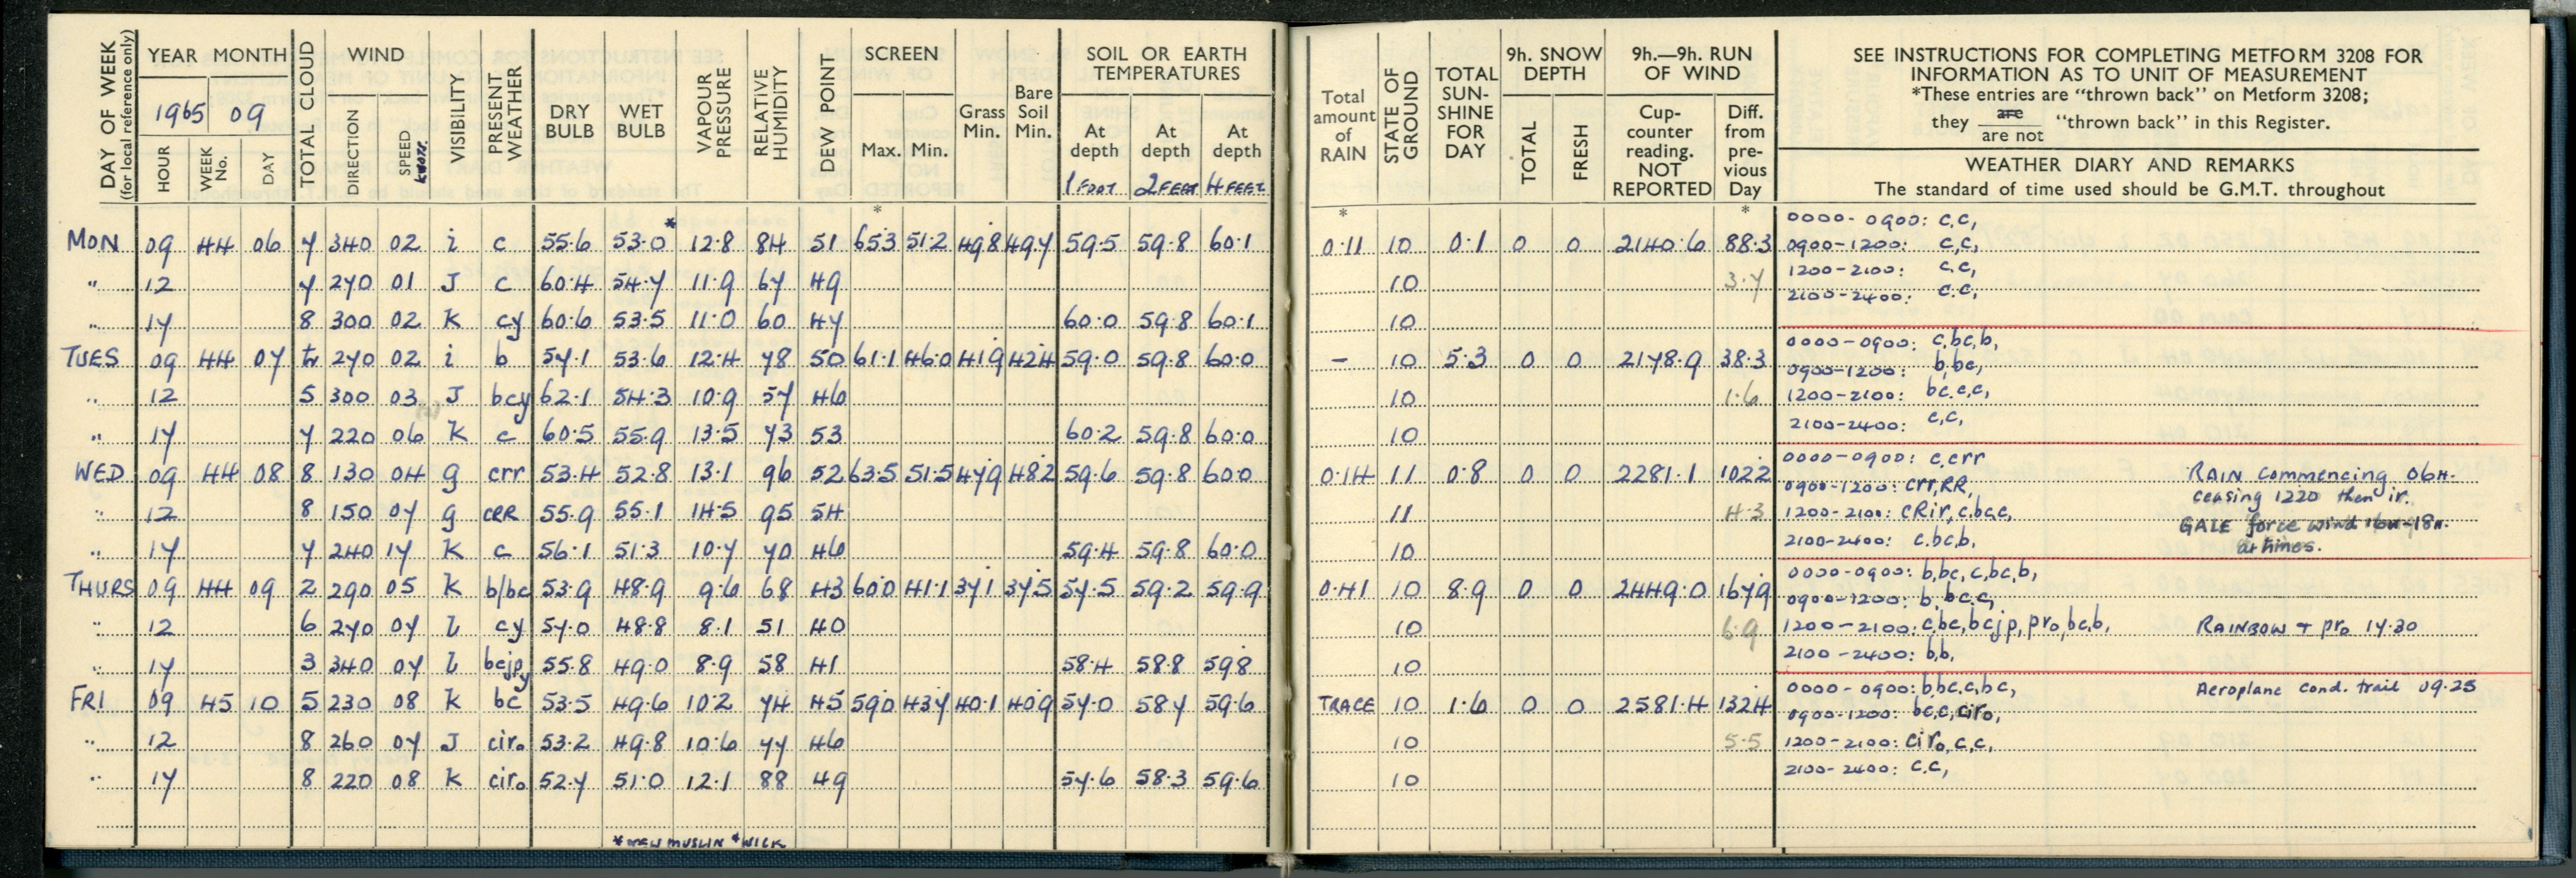 DAY OF WEEK
(for local reference only)
YEAR MONTH
1965 09
HOUR
WEEK No.
DAY
TOTAL CLOUD
WIND
DIRECTION
SPEED
KNOTS
VISIBILITY
PRESENT WEATHER
DRY BULB
WET BULB
VAPOUR PRESSURE
RELATIVE HUMIDITY
DEW POINT
SCREEN
Max. Min.
Grass Min.
Bare Soil Min.
SOIL OR EARTH TEMPERATURES
At depth At depth At depth
1 FOOT 2 FEET 4 FEET
Total amount of RAIN
STATE OF GROUND
TOTAL SUN-SHINE FOR DAY
9h. SNOW DEPTH
TOTAL
FRESH
9h.—9h. RUN OF WIND
Cup-counter reading. NOT REPORTED
Diff. from pre-vious Day
SEE INSTRUCTIONS FOR COMPLETING METFORM 3208 FOR
INFORMATION AS TO UNIT OF MEASUREMENT
*These entries are "thrown back" on Metform 3208;
they are / are not "thrown back" in this Register.
WEATHER DIARY AND REMARKS
The standard of time used should be G.M.T. throughout
* * *
MON 09 44 06 7 340 02 i c 55.6 53.0* 12.8 84 51 65.3 51.2 49.8 49.7 59.5 59.8 60.1
" 12 7 270 01 J c 60.4 54.7 11.9 67 49
" 17 8 300 02 K cy 60.6 53.5 11.0 60 47 60.0 59.8 60.1
TUES 09 44 07 tr 270 02 i b 57.1 53.6 12.4 78 50 61.1 46.0 41.9 42.4 59.0 59.8 60.0
" 12 5 300 03 J bcy 62.1 54.3 10.9 57 46
" 17 7 220 06 K c 60.5 55.9 13.5 73 53 60.2 59.8 60.0
WED 09 44 08 8 130 04 g crr 53.4 52.8 13.1 96 52 63.5 51.5 47.9 48.2 59.6 59.8 60.0
" 12 8 150 07 g cRR 55.9 55.1 14.5 95 54
" 17 7 240 17 K c 56.1 51.3 10.7 70 46 59.4 59.8 60.0
THURS 09 44 09 2 290 05 K b/bc 53.9 48.9 9.6 68 43 60.0 41.1 37.1 37.5 57.5 59.2 59.9
" 12 6 270 07 l cy 57.0 48.8 8.1 51 40
" 17 3 340 07 l bcjpy 55.8 49.0 8.9 58 41 58.4 58.8 59.8
FRI 09 45 10 5 230 08 K bc 53.5 49.6 10.2 74 45 59.0 43.7 40.1 40.9 57.0 58.7 59.6
" 12 8 260 07 J ciro 53.2 49.8 10.6 77 46
" 17 8 220 08 K ciro 52.7 51.0 12.1 88 49 57.6 58.3 59.6
* NEW MUSLIN + WICK
0.11 10 0.1 0 0 2140.6 88.3
10 3.7
10
- 10 5.3 0 0 2178.9 38.3
10 1.6
10
0.14 11 0.8 0 0 2281.1 102.2
11 4.3
10
0.41 10 8.9 0 0 2449.0 167.9
10 6.9
10
TRACE 10 1.6 0 0 2581.4 132.4
10 5.5
10
0000-0900: c,c,
0900-1200: c,c,
1200-2100: c,c,
2100-2400: c,c,
0000-0900: c,bc,b,
0900-1200: b,bc,
1200-2100: bc,c,c,
2100-2400: c,c,
0000-0900: c,crr
0900-1200: crr,RR,
1200-2100: cRir,c,bc,c,
2100-2400: c,bc,b,
RAIN commencing 06H.
ceasing 1220 then ir.
GALE force wind 16H-18H.
at times.
0000-0900: b,bc,c,bc,b,
0900-1200: b,bc,c,
1200-2100: c,bc,bcjp,pro,bc,b,
2100-2400: b,b,
RAINBOW + pro 17.30
0000-0900: b,bc,c,bc,
0900-1200: bc,c,ciro,
1200-2100: ciro,c,c,
2100-2400: c,c,
Aeroplane cond. trail 09.25